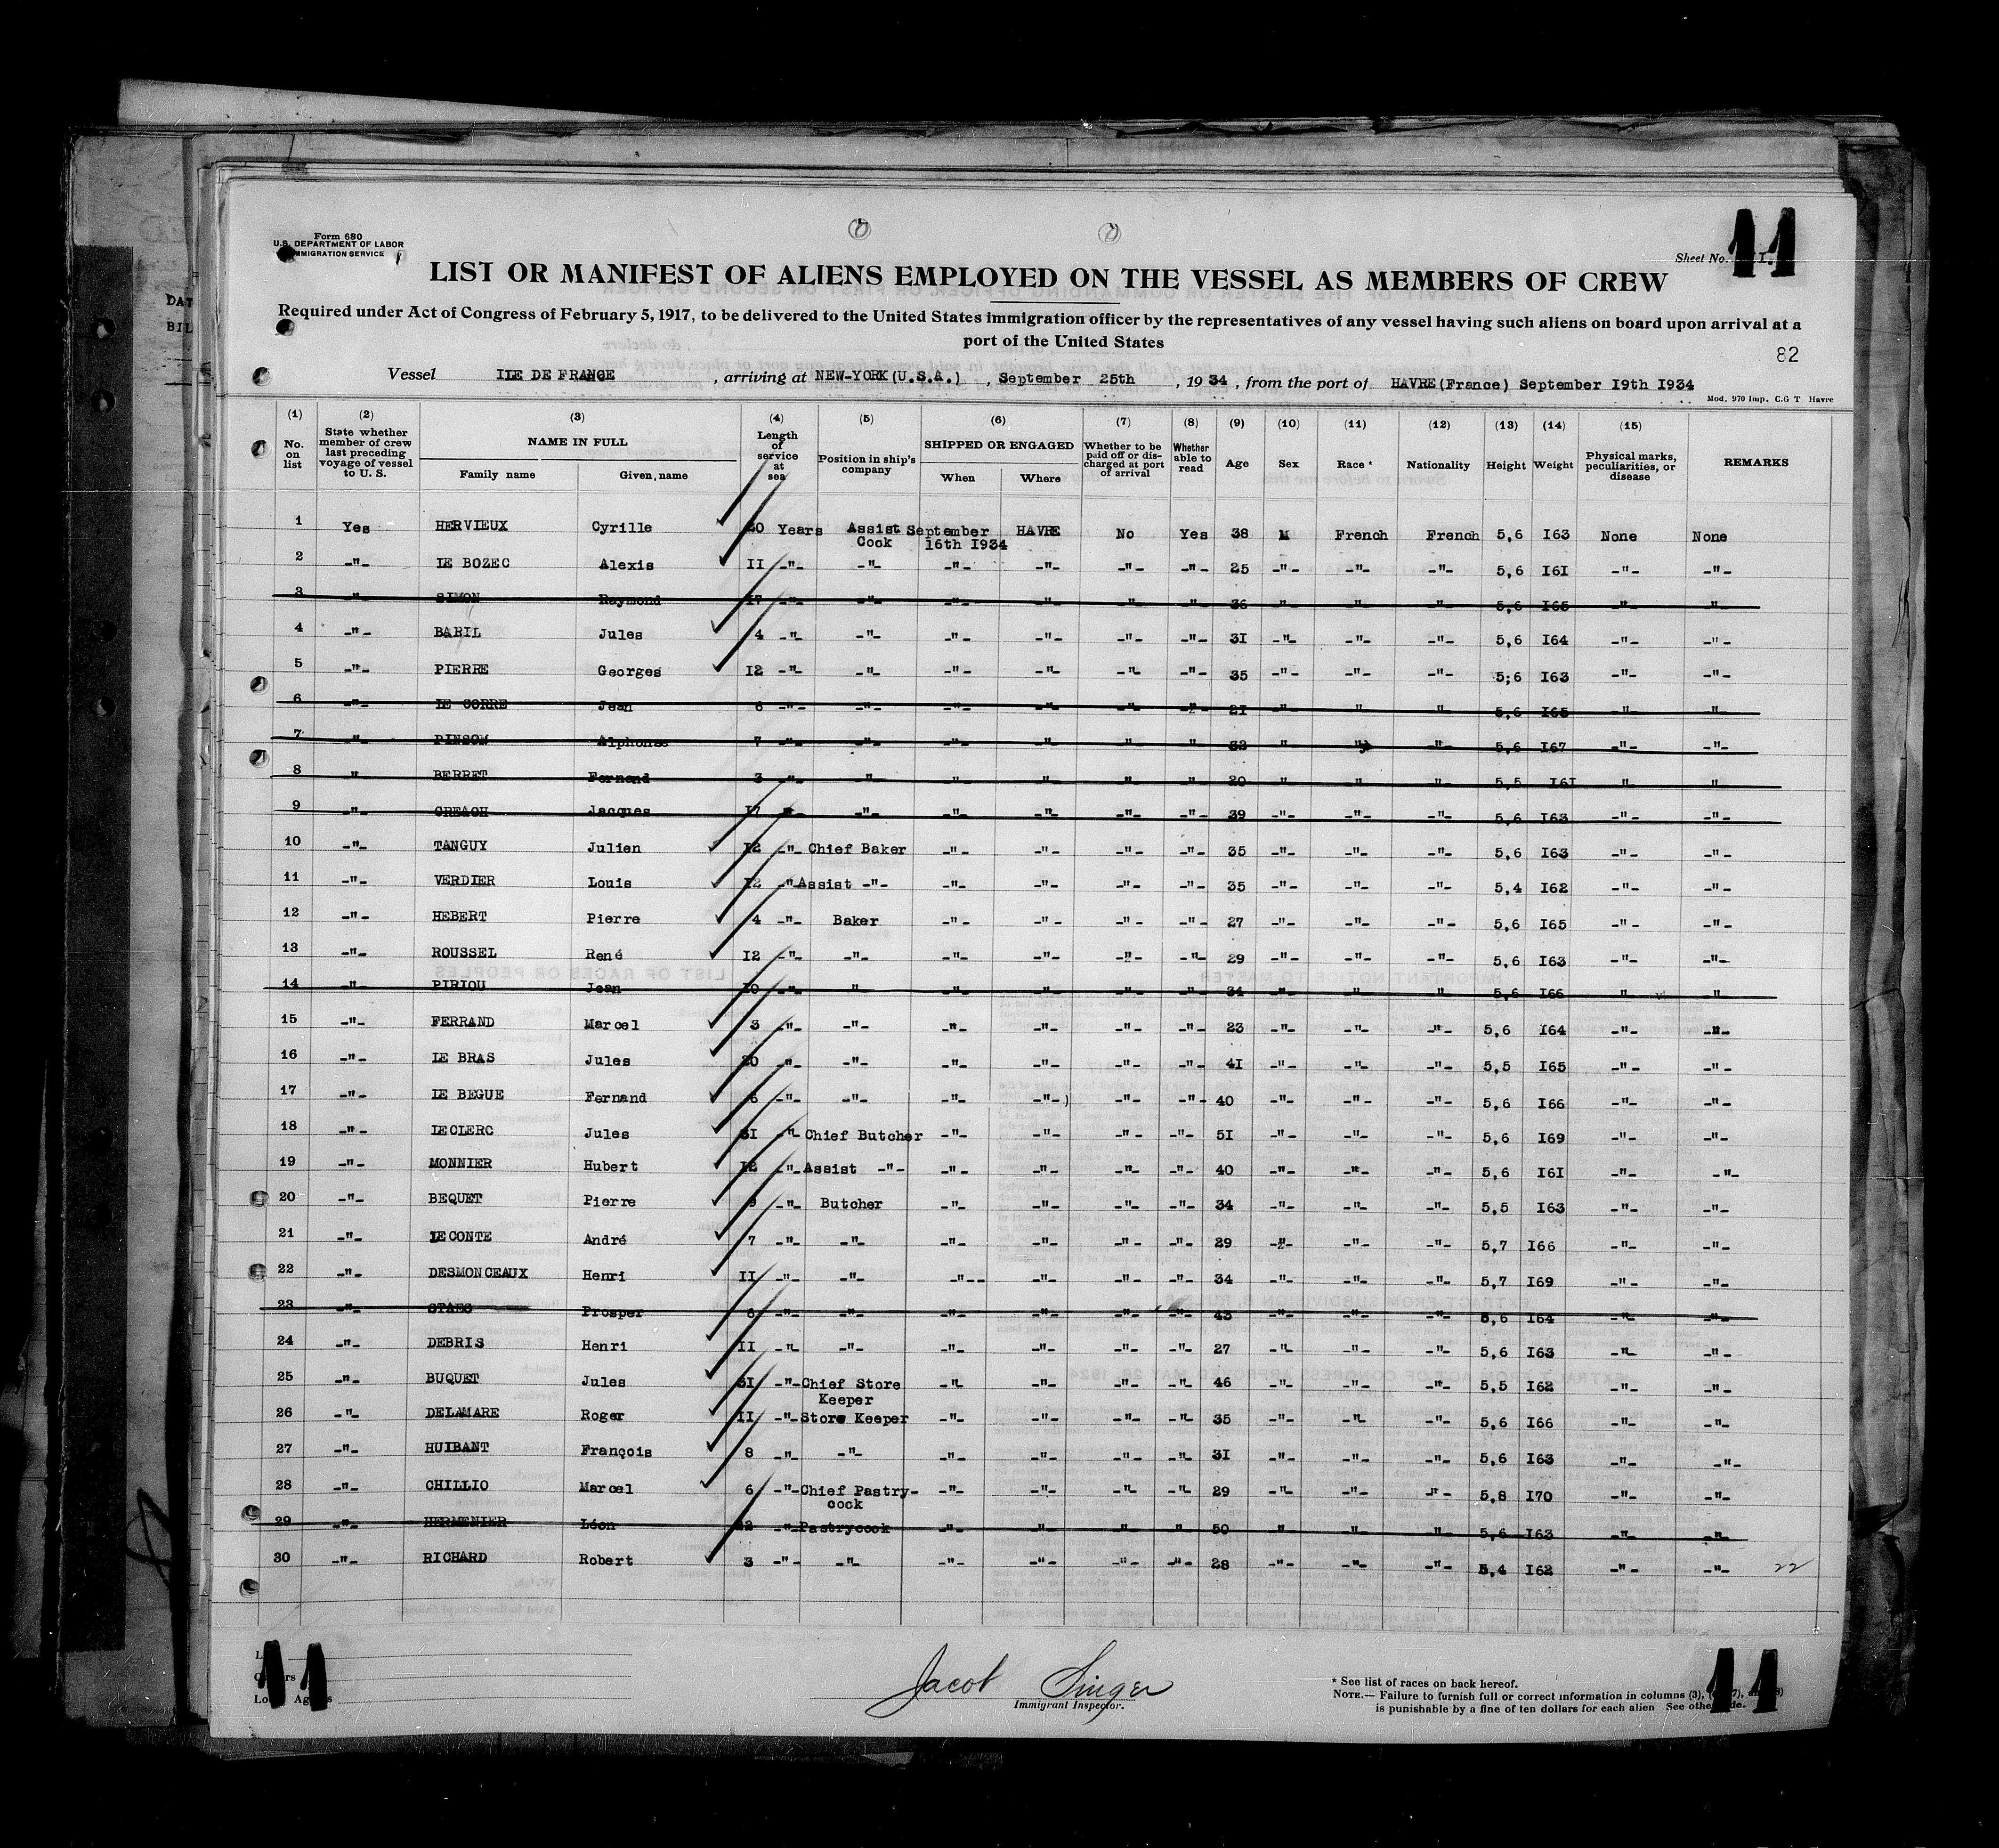 Form 680
U.S. DEPARTMENT OF LABOR
IMMIGRATION SERVICE
Sheet No. 11
LIST OR MANIFEST OF ALIENS EMPLOYED ON THE VESSEL AS MEMBERS OF CREW
Required under Act of Congress of February 5, 1917, to be delivered to the United States immigration officer by the representatives of any vessel having such aliens on board upon arrival at a
port of the United States
82
Vessel ILE DE FRANCE , arriving at NEW-YORK(U.S.A.) , September 25th , 19 34 , from the port of HAVRE(France) September I9th I934
Mod. 970 Imp. C.G T Havre
(1) (2) (3) (4) (5) (6) (7) (8) (9) (10) (11) (12) (13) (14) (15)
No. on list State whether member of crew last preceding voyage of vessel to U. S. NAME IN FULL Family name Given name Length of service at sea Position in ship's company SHIPPED OR ENGAGED When Where Whether to be paid off or discharged at port of arrival Whether able to read Age Sex Race * Nationality Height Weight Physical marks, peculiarities, or disease REMARKS
1 Yes HERVIEUX Cyrille 20 Years Assist Cook September 16th I934 HAVRE No Yes 38 M French French 5,6 I63 None None
2 -"- LE BOZEC Alexis II -"- -"- -"- -"- -"- -"- 25 -"- -"- -"- 5,6 I6I -"- -"-
3 -"- SIMON Raymond I7 -"- -"- -"- -"- -"- -"- 36 -"- -"- -"- 5,6 I65 -"- -"-
4 -"- BARIL Jules 4 -"- -"- -"- -"- -"- -"- 3I -"- -"- -"- 5,6 I64 -"- -"-
5 -"- PIERRE Georges I2 -"- -"- -"- -"- -"- -"- 35 -"- -"- -"- 5;6 I63 -"- -"-
6 -"- LE CORRE Jean 6 -"- -"- -"- -"- -"- -"- 2I -"- -"- -"- 5,6 I65 -"- -"-
7 -"- PINSON Alphonse 7 -"- -"- -"- -"- -"- -"- 32 -"- -"- -"- 5,6 I67 -"- -"-
8 -"- BERRET Fernand 3 -"- -"- -"- -"- -"- -"- 20 -"- -"- -"- 5,5 I6I -"- -"-
9 -"- CREACH Jacques I7 -"- -"- -"- -"- -"- -"- 39 -"- -"- -"- 5,6 I63 -"- -"-
10 -"- TANGUY Julien I2 -"- Chief Baker -"- -"- -"- -"- 35 -"- -"- -"- 5,6 I63 -"- -"-
11 -"- VERDIER Louis I2 -"- Assist -"- -"- -"- -"- -"- 35 -"- -"- -"- 5,4 I62 -"- -"-
12 -"- HEBERT Pierre 4 -"- Baker -"- -"- -"- -"- 27 -"- -"- -"- 5,6 I65 -"- -"-
13 -"- ROUSSEL René I2 -"- -"- -"- -"- -"- -"- 29 -"- -"- -"- 5,6 I63 -"- -"-
14 -"- PIRIOU Jean I0 -"- -"- -"- -"- -"- -"- 34 -"- -"- -"- 5,6 I66 -"- -"-
15 -"- FERRAND Marcel 3 -"- -"- -"- -"- -"- -"- 23 -"- -"- -"- 5,6 I64 -"- -"-
16 -"- LE BRAS Jules 20 -"- -"- -"- -"- -"- -"- 4I -"- -"- -"- 5,5 I65 -"- -"-
17 -"- LE BEGUE Fernand 6 -"- -"- -"- -"- -"- -"- 40 -"- -"- -"- 5,6 I66 -"- -"-
18 -"- LECLERC Jules 3I -"- Chief Butcher -"- -"- -"- -"- 5I -"- -"- -"- 5,6 I69 -"- -"-
19 -"- MONNIER Hubert I2 -"- Assist -"- -"- -"- -"- -"- 40 -"- -"- -"- 5,6 I6I -"- -"-
20 -"- BEQUET Pierre 9 -"- Butcher -"- -"- -"- -"- 34 -"- -"- -"- 5,5 I63 -"- -"-
21 -"- LECONTE André 7 -"- -"- -"- -"- -"- -"- 29 -"- -"- -"- 5,7 I66 -"- -"-
22 -"- DESMONCEAUX Henri II -"- -"- -"-- -"- -"- -"- 34 -"- -"- -"- 5,7 I69 -"- -"-
23 -"- STAES Prosper 6 -"- -"- -"- -"- -"- -"- 43 -"- -"- -"- 5,6 I64 -"- -"-
24 -"- DEBRIS Henri II -"- -"- -"- -"- -"- -"- 27 -"- -"- -"- 5,6 I63 -"- -"-
25 -"- BUQUET Jules 3I -"- Chief Store Keeper -"- -"- -"- -"- 46 -"- -"- -"- 5,5 I62 -"- -"-
26 -"- DELAMARE Roger II -"- Store Keeper -"- -"- -"- -"- 35 -"- -"- -"- 5,6 I66 -"- -"-
27 -"- HUIBANT François 8 -"- -"- -"- -"- -"- -"- 3I -"- -"- -"- 5,6 I63 -"- -"-
28 -"- CHILLIO Marcel 6 -"- Chief Pastry-cock -"- -"- -"- -"- 29 -"- -"- -"- 5,8 I70 -"- -"-
29 -"- HERMENIER Léon 22 -"- Pastrycook -"- -"- -"- -"- 50 -"- -"- -"- 5,6 I63 -"- -"-
30 -"- RICHARD Robert 3 -"- -"- -"- -"- -"- -"- 28 -"- -"- -"- 5,4 I62 -"- -"- 22
11
Jacob Singer
Immigrant Inspector.
* See list of races on back hereof.
NOTE.— Failure to furnish full or correct information in columns (3),
is punishable by a fine of ten dollars for each alien See other side.
11